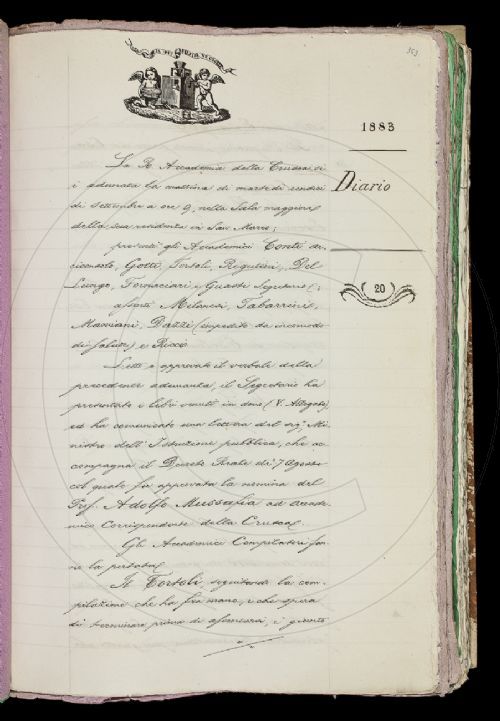 353
1883
Diario
20
La R. Accademia della Crusca si
è adunata la mattina di martedì undici
di Settembre a ore 9, nella Sala maggiore
della sua residenza in San Marco;
presenti gli Accademici Conti Ar-
ciconsolo, Gotti, Tortoli, Rigutini, Del
Lungo, Fornaciari, e Guasti Segretario;
assenti Milanesi, Tabarrini,
Mamiani, Dazzi (impedito da incomodo
di salute) e Ricci.
Letto e approvato il verbale della
precedente adunanza, il Segretario ha
presentato i libri venuti in dono (V. Allegato)
ed ha comunicato una lettera del sig. Mi-
nistro dell'Istruzione pubblica, che ac-
compagna il Decreto Reale di 7 Agosto
col quale fu approvata la nomina del
Prof. Adolfo Mussafia ad Accade-
mico Corrispondente della Crusca.
Gli Accademici Compilatori fan-
no la portata.
Il Tortoli, seguitando la com-
pilazione che ha fra mano, e che spera
di terminare prima di , è giunto